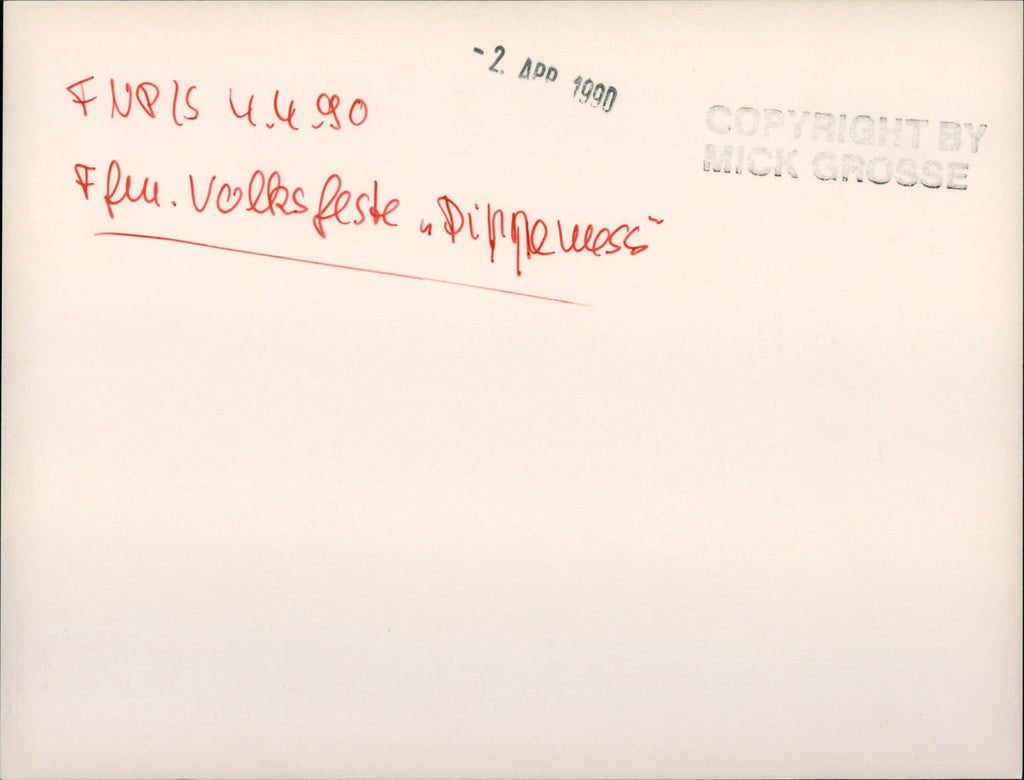 - 2. APR 1990
COPYRIGHT BY
MICK GROSSE
FNP/S 4.4.90
Ffm. Volksfeste „Dippemess“